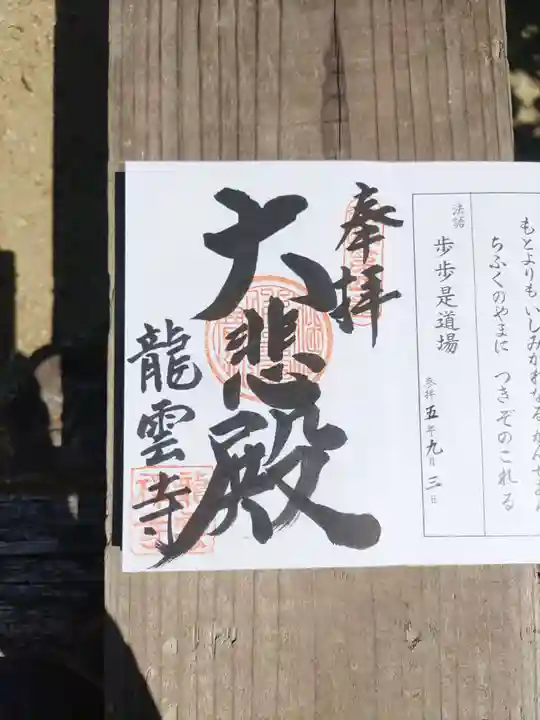 もとよりも いしみかわなる かんせおん
ちふくのやまに つきぞのこれる
法話
歩歩是道場
参拝 五年九月三日
奉拝
大悲殿
龍雲寺